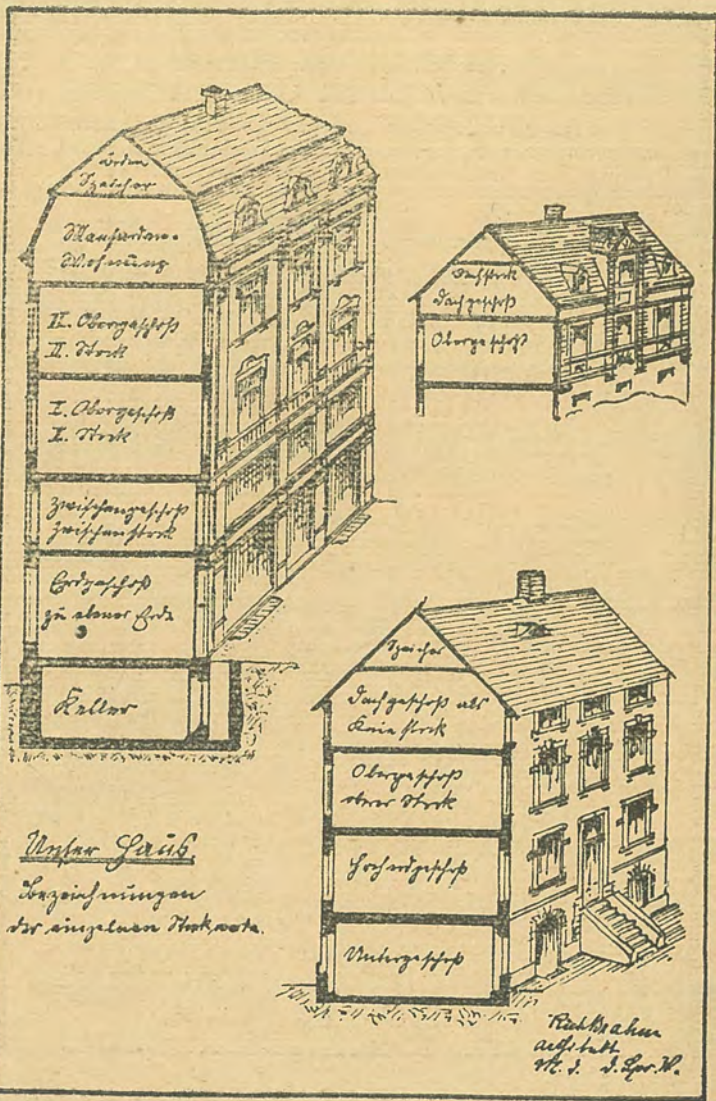 Boden
Speicher
Mansarden-
Wohnung
II. Obergeschoß
III. Stock
I. Obergeschoß
II. Stock
Zwischengeschoß
Zwischenstock
Erdgeschoß
zu ebener Erde
Keller
Dachstock
Dachgeschoß
Obergeschoß
Speicher
Dachgeschoß als
Kniestock
Obergeschoß
oberer Stock
Hocherdgeschoß
Untergeschoß
Unser Haus.
Bezeichnungen
der einzelnen Stockwerke.
Architekt
M. d. D. Spr. V.